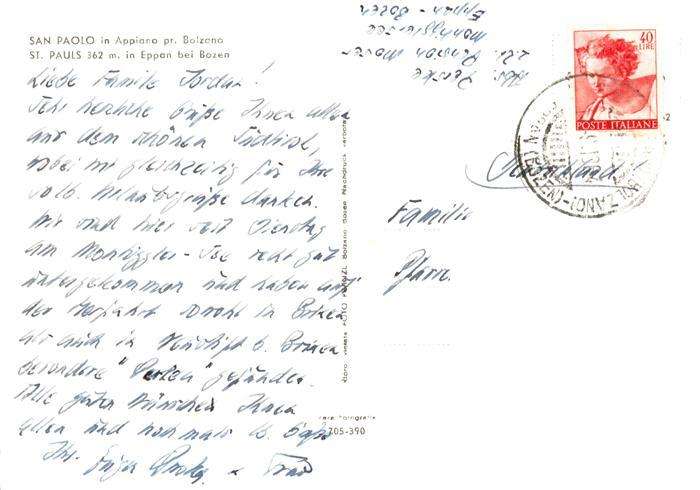 SAN PAOLO in Appiano pr. Bolzano
ST. PAULS 362 m. in Eppan bei Bozen
Liebe Familie Jordan!
Sehr herzliche Grüße Ihnen allen
aus dem schönen Südtirol,
wobei wir gleichzeitig für Ihre
Urlaubsgrüße danken.
Wir sind hier seit Dienstag
am Montiggler-See recht gut
untergekommen und haben auf
der Herfahrt sowohl in Brixen
als auch in Neustift b. Brixen
besondere "Perlen" gefunden.
Alle guten Wünsche Ihnen
allen und nochmals lb. Grüße
Ihr.
Abs.
Pension
Montigglersee
Eppan - Bozen
40
LIRE
POSTE ITALIANE
Deutschland
Familie
Pfarr.
FOTO
Bolzano Bozen Nachdruck verboten
705-390